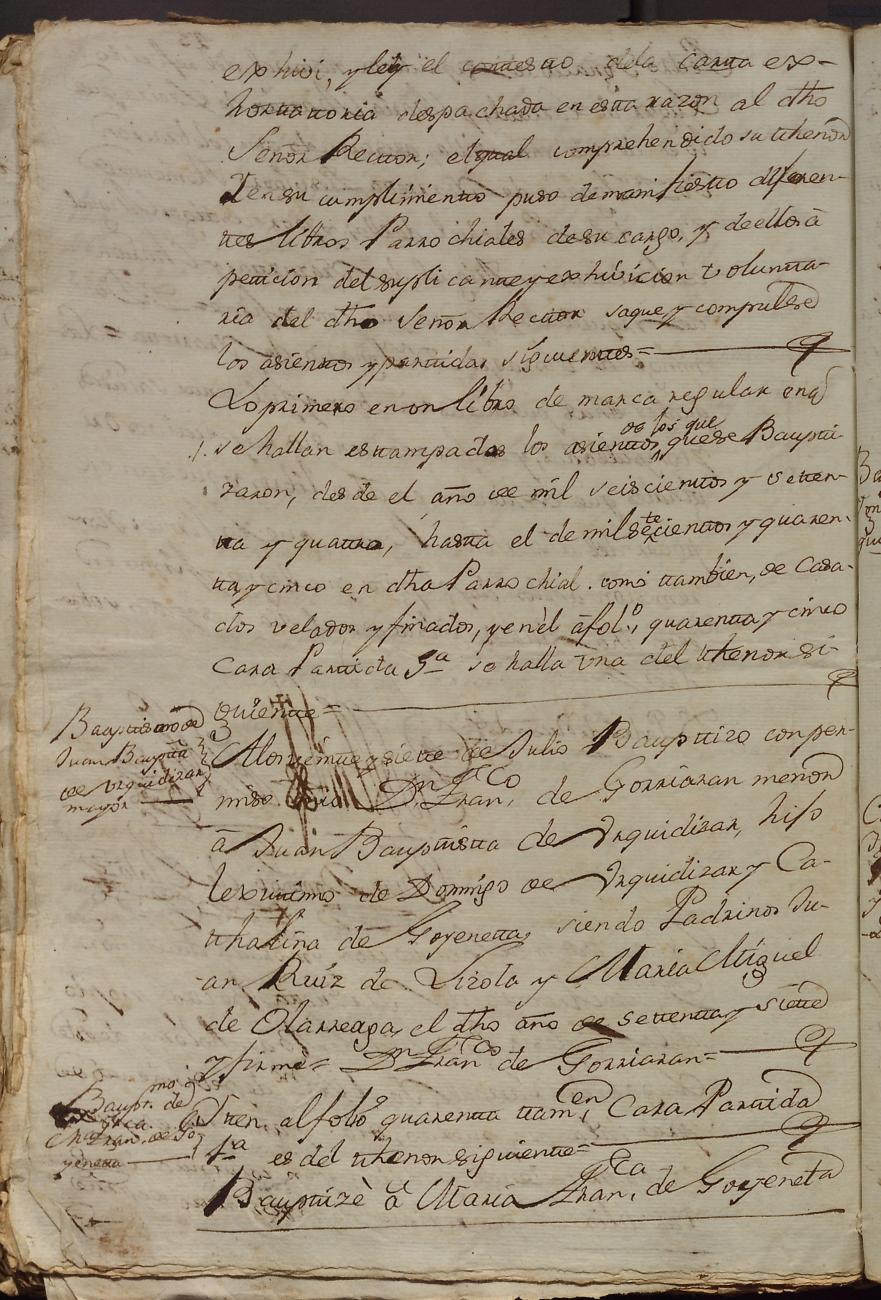 exhiví, y leý el contestto dela Cartta ex-
horttattoria despachada en estta razon al dho
Señor Rector; el qual comprehendido su tthenor
Y en su cumplimientto puso de manifiestto diferen-
ttes libros Parrochiales de su cargo, y de ellos à
peticion del suplicantte y exhivicion voluntta-
ria del dho Señor Rector saque y compulse
los asienttos y parttidas siguienttes=
Lo primero en un libro de marca regular en q
1. se hallan esttampados los asienttos, de los que quese Baupti
zaron, desde el año de mil seiscienttos y setten-
tta y quattro, hastta el de mil settecienttos y quaren-
tta y cinco en dha Parrochial. como ttambien, de Casa-
dos velados y finados, y en èl à folº, quarentta y cinco
Cara Parttida 5ª se halla una del tthenor si-
guientte=
Bauptismo de
Juan Baupttа
de Urquidizar
mayor
A los veintte y siette de Julio Baupttizo con per-
miso D.n Fran.co de Gorriaran menor
à Juan Bauptistta de Urquidizar, hijo
lexittimo de Domingo de Urquidizar y Ca-
tthalina de Goyenetta, siendo Padrinos Ju-
an Ruiz de Lizola y Maria Miguel
de Olarreaga, el dho año de settentta y siette
y firmè= D.n Fran.co de Gorriaran=
Baupt.mo de
M.a Fran.ca de Go
yenetta
Itten, al folº quarentta ttam.en, Cara Parttida
1.a es del tthenor siguientte=
Baupttizè à Maria Fran.ca de Goyeneta